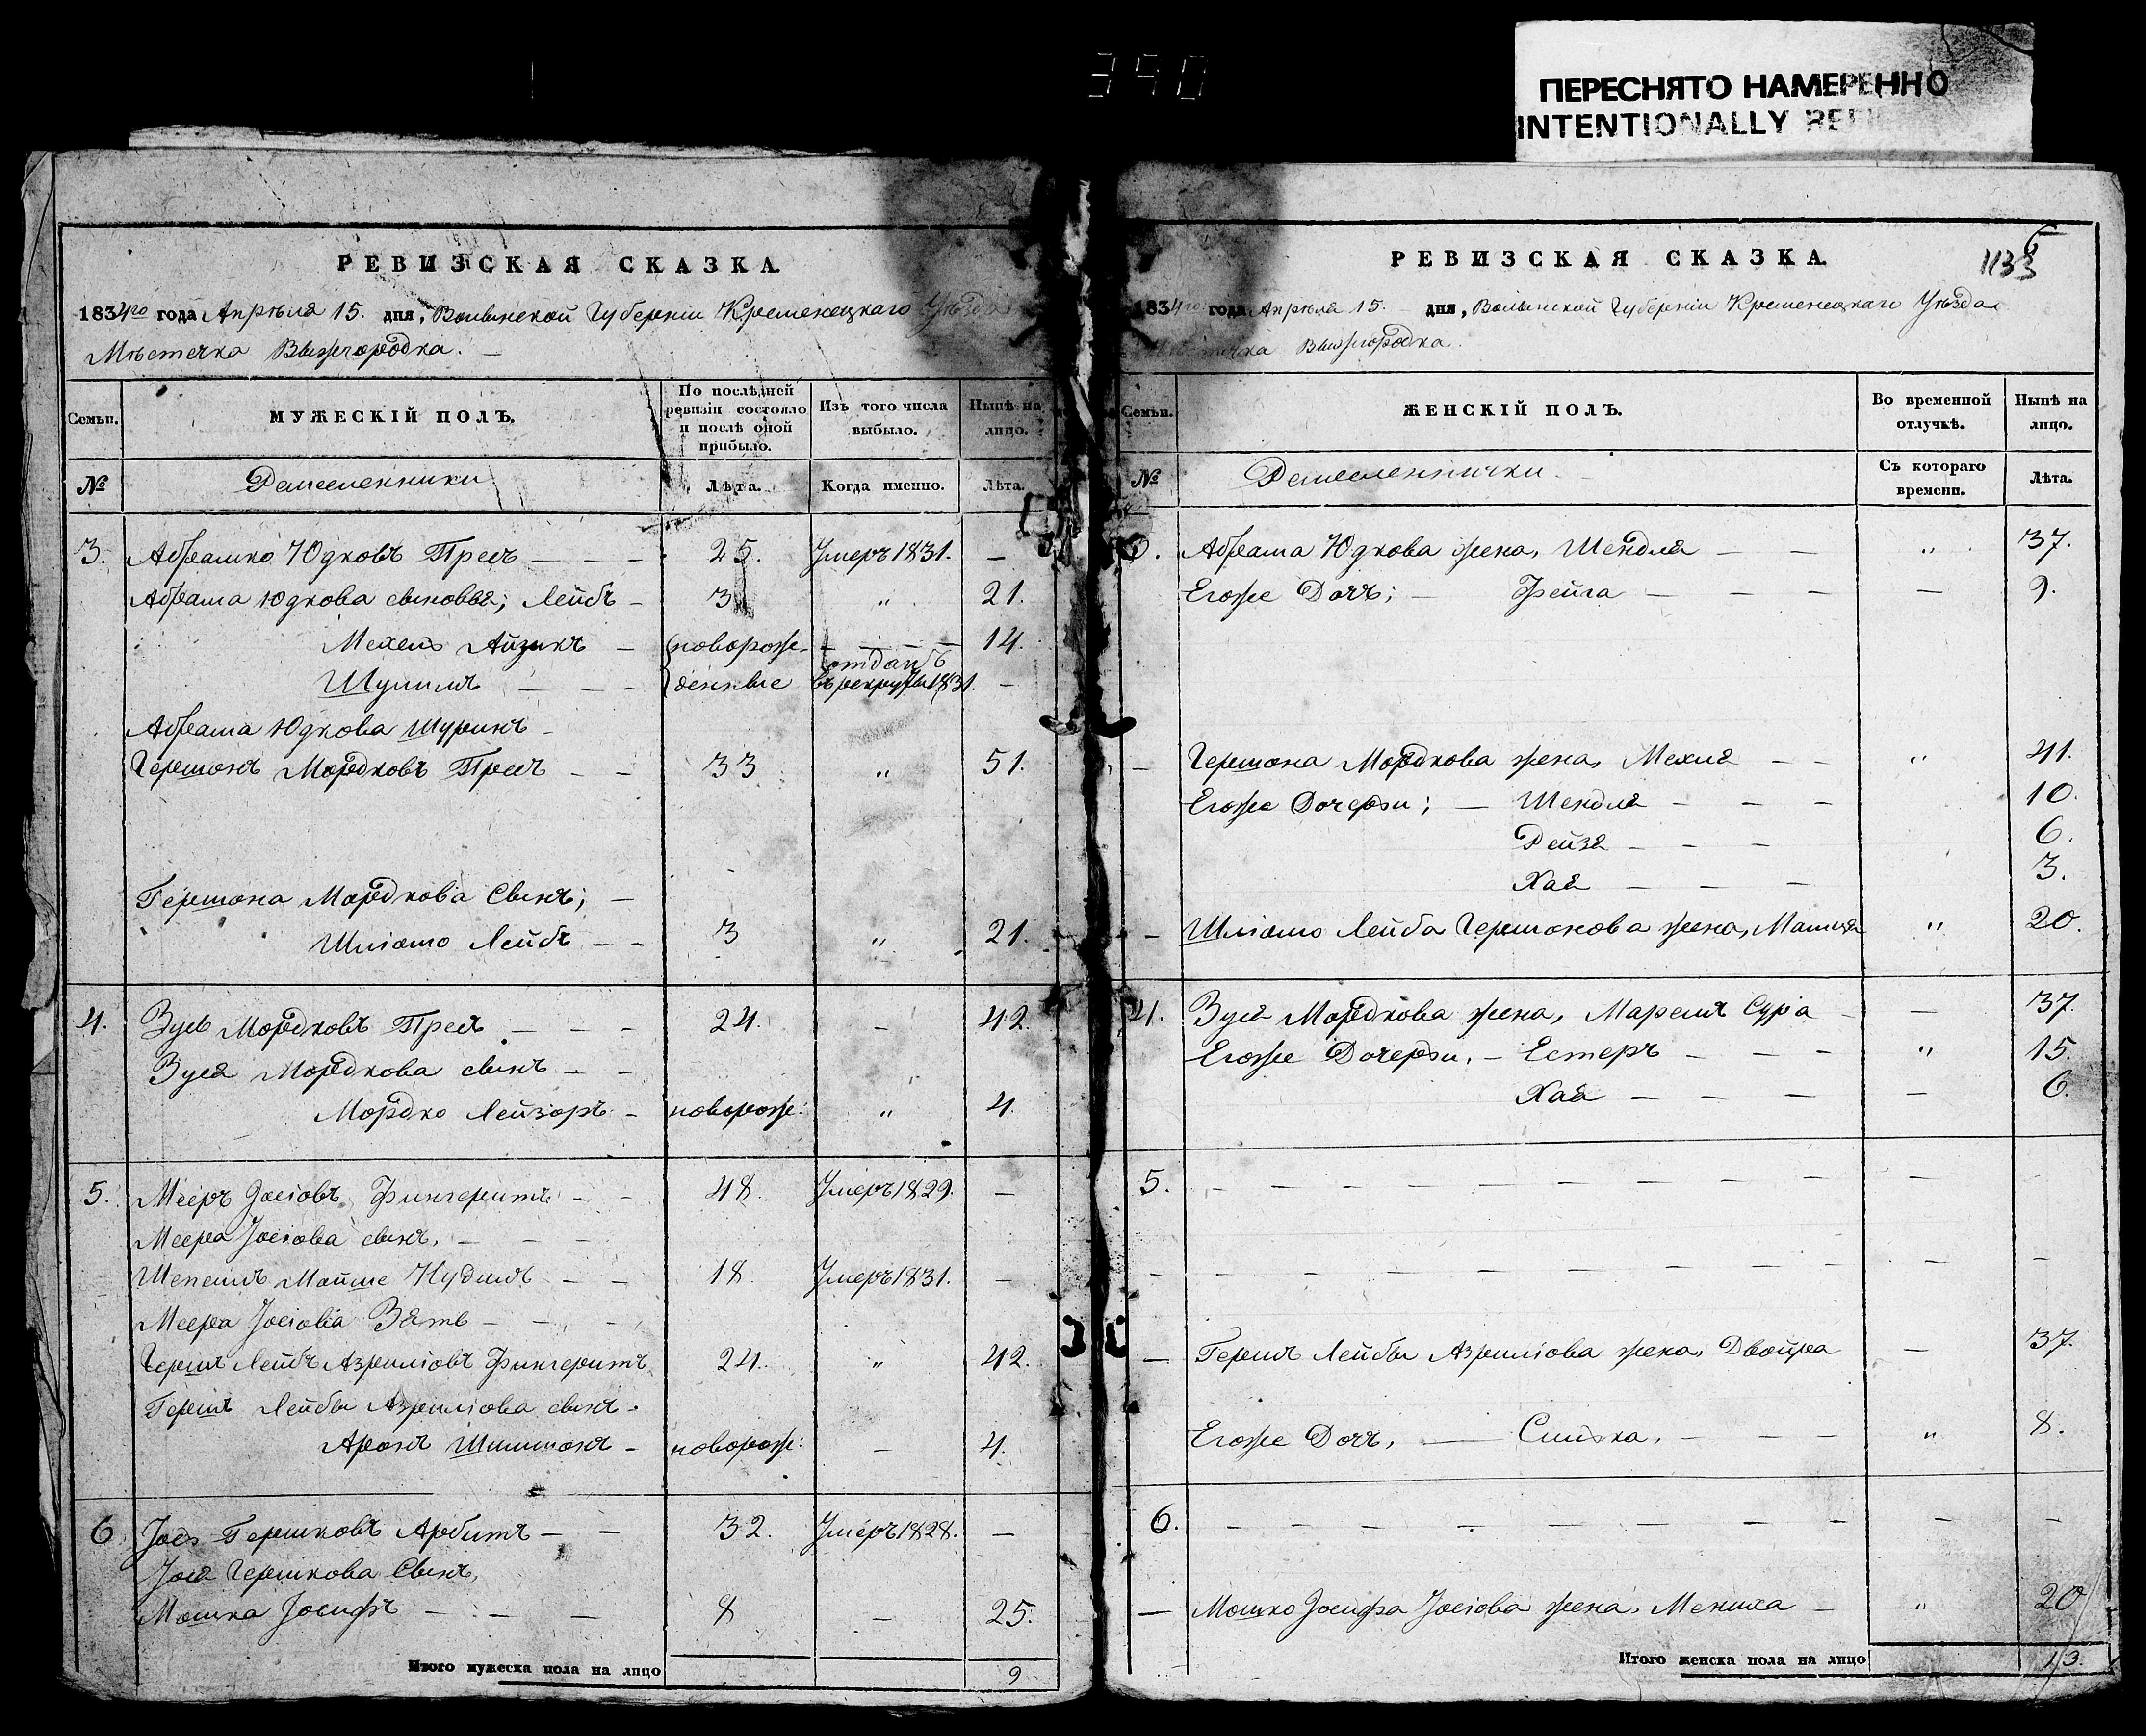 390
ПЕРЕСНЯТО НАМЕРЕННО
INTENTIONALLY
РЕВИЗСКАЯ СКАЗКА.
1834го года Апрѣля 15. дня, Волынской Губерніи Кременецкаго Уѣзда
Мѣстечка Вышгородка.
Семьи.
МУЖЕСКІЙ ПОЛЪ.
По послѣдней ревизіи состояло и послѣ оной прибыло.
Изъ того числа выбыло.
Нынѣ на лицо.
№
Ремесленники
Лѣта.
Когда именно.
Лѣта.
3. Абрамко Юдковъ Пресъ — — — 25. Умеръ 1831. —
Абрама Юдкова сыновья; Лейбъ — 3 „ 21.
Мехель Айзикъ — новорож- — — — 14.
Шулимъ — — — денные отданъ въ рекруты 1831. —
Абрама Юдкова Шуринъ —
Гершонъ Мордковъ Пресъ — — 33 „ 51.
Гершона Мордкова Сынъ; —
Шліомо Лейбъ — — 3 „ 21.
4. Зусь Мордковъ Пресъ — — — 24. — 42.
Зуся Мордкова сынъ — —
Мордко Лейзоръ — новорож: „ 4.
5. Мееръ Іосіовъ Фингерштъ — — 48. Умеръ 1829. —
Меера Іосіова сынъ, — — —
Шепсель Мойше Нудель — — 18. Умеръ 1831. —
Меера Іосіова Зять — — —
Гершъ Лейбъ Азриліовъ Фингерштъ 24. „ 42.
Гершъ Лейбы Азриліова сынъ.
Аронъ Шимшонъ — новорож: — 4.
6 Іось Гершковъ Арбитъ — — 32. Умеръ 1828. —
Іося Гершкова Сынъ,
Мошка Іосифъ — — — 8 — 25.
Итого мужеска пола на лицо 9
РЕВИЗСКАЯ СКАЗКА.
1133
1834го года Апрѣля 15. — дня, Волынской Губерніи Кременецкаго Уѣзда
Мѣстечка Вышгородка.
Семьи.
ЖЕНСКІЙ ПОЛЪ.
Во временной отлучкѣ.
Нынѣ на лицо.
№
Ремесленнички.
Съ котораго времени.
Лѣта.
3. Абрама Юдкова жена, Шендля — — „ 37.
Егоже Дочь; — Фейга — — — — 9.
— Гершона Мордкова жена, Мехля — — „ 41.
Егоже Дочери; — Шендля — — — 10.
Рейзя — — — 6.
Хая — — — 3.
— Шліомо Лейба Гершонова жена, „ 20.
4. Зуся Мордкова жена, Сура — — 37.
Егоже Дочери, — Естеръ — — — „ 15.
Хая — — — — 6.
5. — — — — — — — — — —
— — — — — — — — — —
— Гершъ Лейбы Азриліова жена, Двойра — 37.
Егоже Дочь, — — — — „ 8.
6. — — — — — — — — — —
— Мошко Іосифа Іосіова жена, Мениха — „ 20
Итого женска пола на лицо 13.